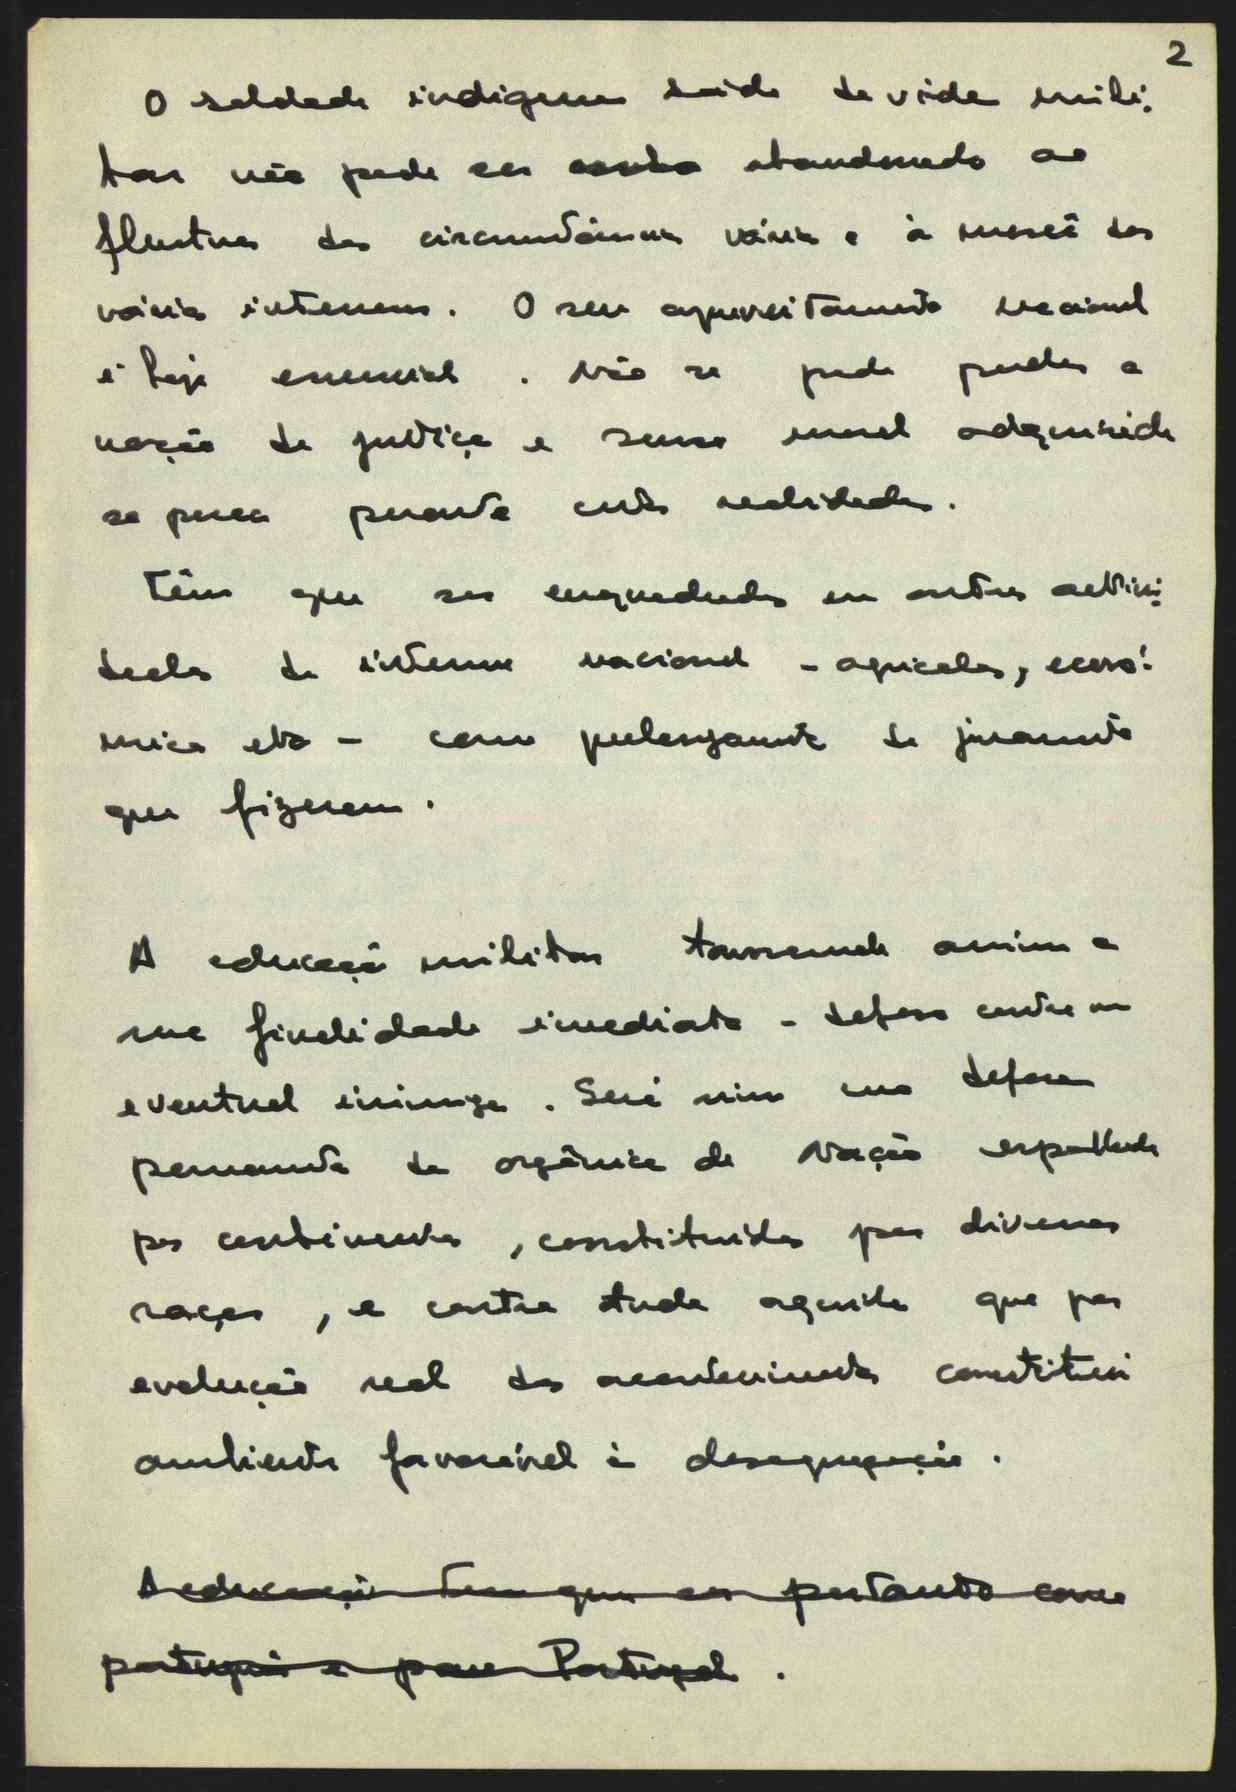 2
O soldado indígena saído da vida mili-
tar não pode ser abandonado ao
flutuar das circunstâncias várias e à mercê dos
vários interesses. O seu aproveitamento nacional
é hoje essencial. Não se pode perder a
noção de justiça e senso moral adquirido
perante certas realidades.
Têm que ser enquadrados em outras activi-
dades de interesse nacional - agrícolas, econó-
mica etc - como prolongamento do juramento
que fizeram.
A educação militar transcende assim a
sua finalidade imediata - defesa contra um
eventual inimigo. Será sim uma defesa
permanente da orgânica da Nação espalhada
por continentes, constituída por diversas
raças, e contra tudo aquilo que por
evolução real dos acontecimentos constitui
ambiente favorável à desagregação.
A educação tem que ser portanto como
português e para Portugal.